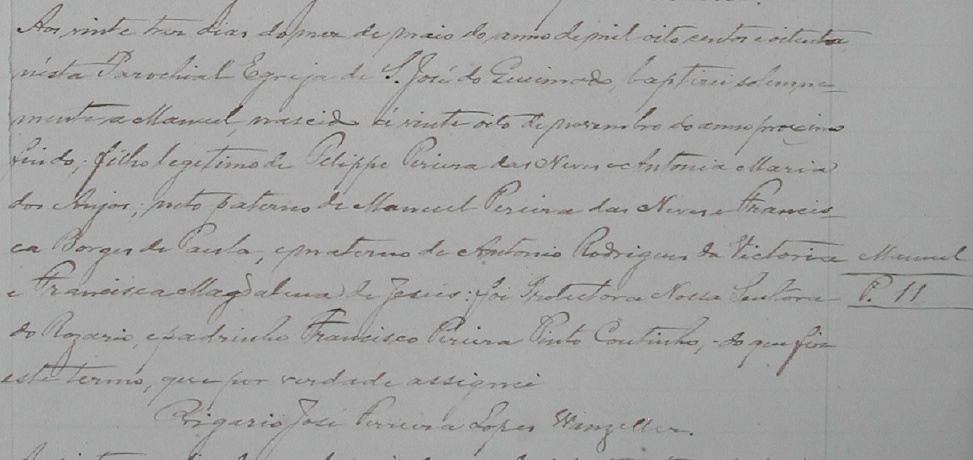 Aos vinte tres dias do mez de maio do anno de mil oito centos e oitenta
nésta Parochial Egreja de S. José do Queimado, baptizei solemne
mente a Manuel, nascido á vinte oito de novembro do anno proximo
findo; filho legitimo de Felippe Pereira das Neves e Antonia Maria
dos Anjos; neto paterno de Manuel Pereira das Neves e Francis
ca Borges de Paula, e materno de Antonio Rodrigues da Victoria
Manuel
e Francisca Magdalena de Jesus: foi Protectora Nossa Senhora
P. 11
do Rozario, e padrinho Francisco Pereira Pinto Coutinho, do que fiz
este termo, que por verdade assignei
José Pereira Lopes Wanzeller.